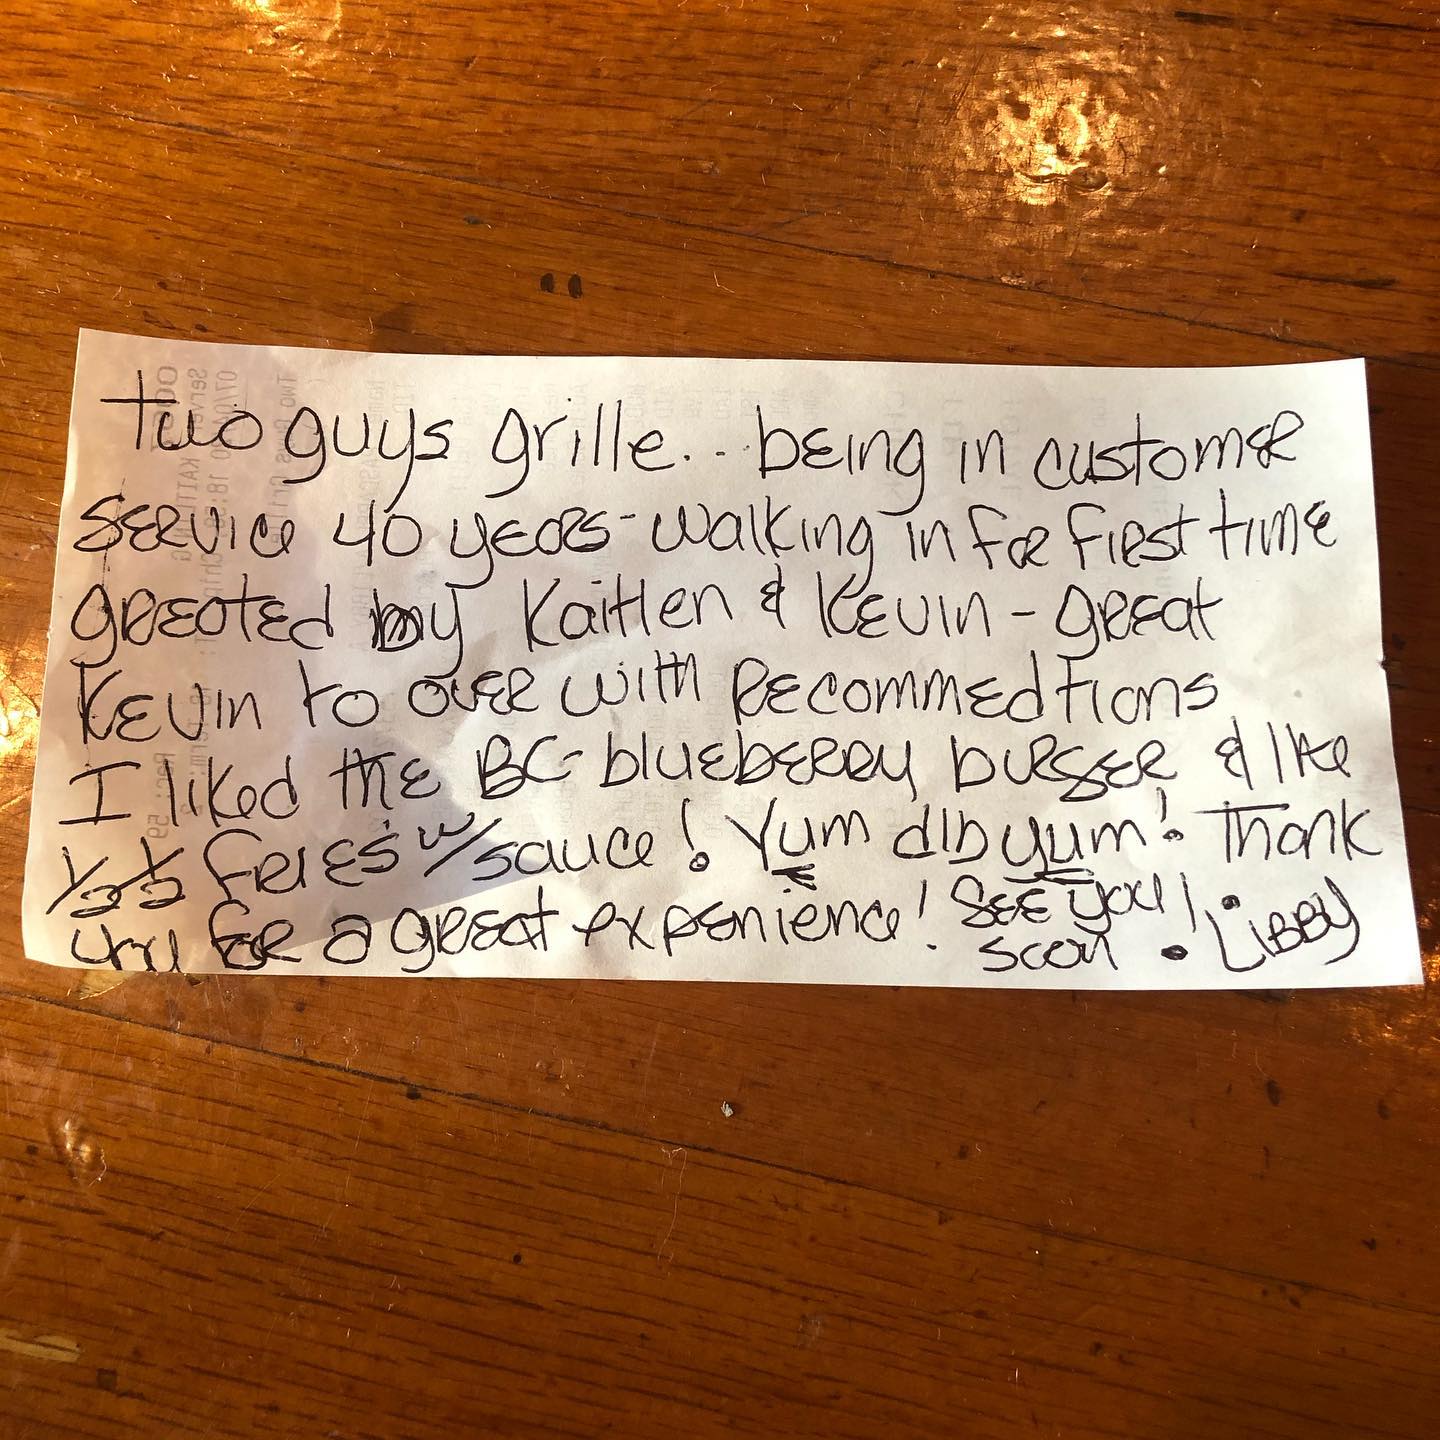 two guys grille... being in customer
service 40 years - walking in for first time
greeted by Kaitlen & Kevin - great
Kevin to over with recommedtions
I liked the BC-blueberry burger & like
1/2 1/2 fries w/sauce! Yum dib yum! Thank
you for a great expenience! See you
soon! Libby